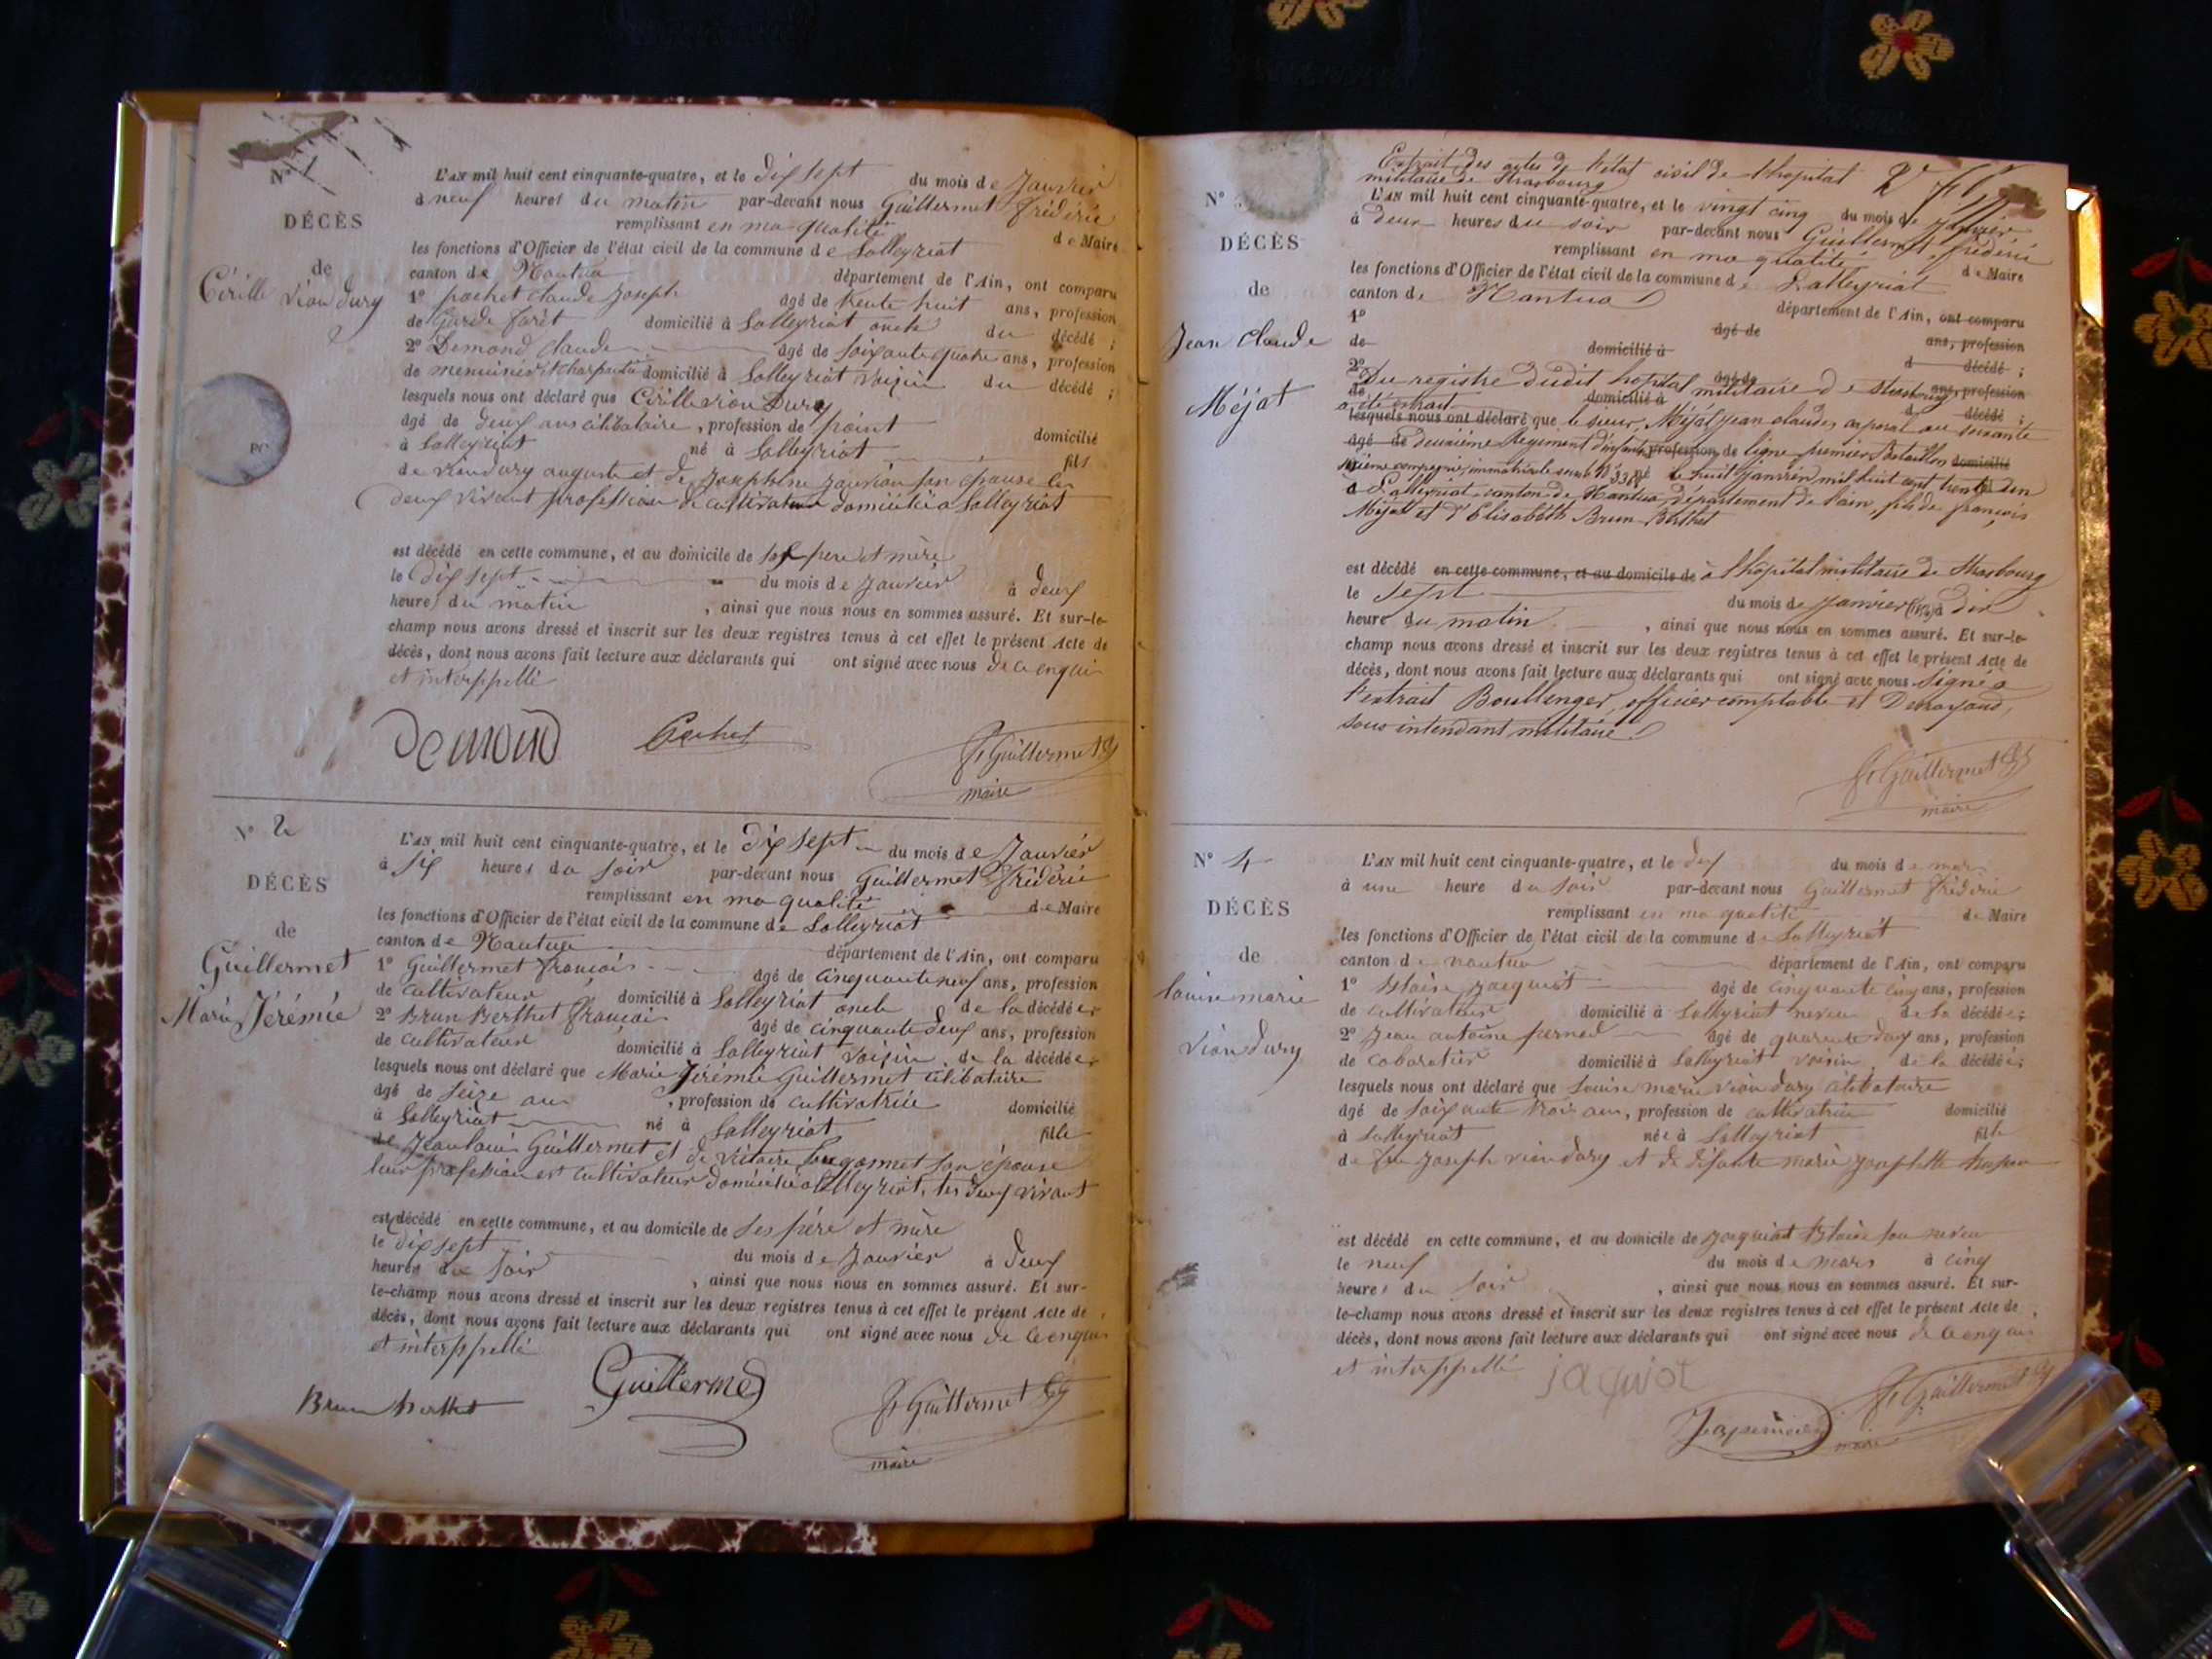 N° 1
DÉCÈS
de
Cirille Vion dury
L'AN mil huit cent cinquante-quatre, et le dix sept du mois de Janvier
à neuf heures du matin par-devant nous Guillermet frédéric
remplissant en ma qualité de Maire
les fonctions d'Officier de l'état civil de la commune de Lalleyriat
canton de Nantua département de l'Ain, ont comparu
1° pochet claude Joseph âgé de trente huit ans, profession
de Garde forêt domicilié à Lalleyriat oncle du décédé ;
2° Demond claude âgé de soixante quatre ans, profession
de menuisier et charpentier domicilié à Lalleyriat voisin du décédé ;
lesquels nous ont déclaré que Cirille vion Dury
âgé de deux ans célibataire, profession de point domicilié
à Lalleyriat né à Lalleyriat fils
de viondury auguste et de Josephine son épouse les
deux vivant profession de cultivateur domicilié a Lalleyriat
est décédé en cette commune, et au domicile de ses pere et mère
le dix sept du mois de Janvier à deux
heures du matin, ainsi que nous nous en sommes assuré. Et sur-le-
champ nous avons dressé et inscrit sur les deux registres tenus à cet effet le présent Acte de
décès, dont nous avons fait lecture aux déclarants qui ont signé avec nous de ce enquis
et interppellé
Demond Pochet fs Guillermet
maire
N° 2
DÉCÈS
de
Guillermet
Marie Jérémie
L'AN mil huit cent cinquante-quatre, et le dix sept du mois de Janvier
à six heures du soir par-devant nous Guillermet frédéric
remplissant en ma qualité de Maire
les fonctions d'Officier de l'état civil de la commune de Lalleyriat
canton de Nantua département de l'Ain, ont comparu
1° Guillermet françois âgé de cinquante neuf ans, profession
de cultivateur domicilié à Lalleyriat oncle de la décédée ;
2° Brun Berthet françois âgé de cinquante deux ans, profession
de cultivateur domicilié à Lalleyriat voisin de la décédée ;
lesquels nous ont déclaré que Marie Jérémie Guillermet célibataire
âgé de seize ans, profession de cultivatrice domicilié
à Lalleyriat né à Lalleyriat fille
de Jean louis Guillermet et de Victoire son épouse
leur profession est cultivateur domicilié a Lalleyriat, les deux vivant
est décédé en cette commune, et au domicile de ses père et mère
le dix sept du mois de Janvier à deux
heures du soir, ainsi que nous nous en sommes assuré. Et sur-
le-champ nous avons dressé et inscrit sur les deux registres tenus à cet effet le présent Acte de
décès, dont nous avons fait lecture aux déclarants qui ont signé avec nous de ce enquis
et interppellé
Brun Berthet Guillermet fs Guillermet
maire
Extrait des actes de l'état civil de l'hopital
militaire de Strasbourg
N°
DÉCÈS
de
Jean Claude
Méjat
L'AN mil huit cent cinquante-quatre, et le vingt cinq du mois de Janvier
à deux heures du soir par-devant nous Guillermet frédéric
remplissant en ma qualité de Maire
les fonctions d'Officier de l'état civil de la commune de Lalleyriat
canton de Nantua département de l'Ain, ont comparu
1° âgé de ans, profession
de domicilié à d décédé ;
2° âgé de ans, profession
Du registre dudit hopital militaire de Strasbourg
de domicilié à d décédé ;
a été extrait
lesquels nous ont déclaré que le sieur Méjat Jean claude, caporal au soixante
âgé de deuxième Régiment d'infanterie profession de ligne premier Bataillon domicilié
compagnie, immatriculé sous le N° né le huit janvier mil huit cent trente
à Lalleyriat canton de Nantua département de l'ain, fils de françois
Méjat et d'Elisabeth Brun Berthet
est décédé en cette commune, et au domicile de à l'hôpital militaire de Strasbourg
le sept du mois de janvier à dix
heure du matin, ainsi que nous nous en sommes assuré. Et sur-le-
champ nous avons dressé et inscrit sur les deux registres tenus à cet effet le présent Acte de
décès, dont nous avons fait lecture aux déclarants qui ont signé avec nous Signé à
l'extrait Boullenger, officier comptable et
sous intendant militaire.
fs Guillermet
maire
N° 4
DÉCÈS
de
louise marie
Vion dury
L'AN mil huit cent cinquante-quatre, et le dix du mois de mars
à une heure du soir par-devant nous Guillermet frédéric
remplissant en ma qualité de Maire
les fonctions d'Officier de l'état civil de la commune de Lalleyriat
canton de nantua département de l'Ain, ont comparu
1° Blaise Jacquiot âgé de cinquante cinq ans, profession
de cultivateur domicilié à Lalleyriat neveu de la décédée ;
2° Jean antoine âgé de quarante deux ans, profession
de cabaretier domicilié à Lalleyriat voisin de la décédée ;
lesquels nous ont déclaré que louise marie vion dury célibataire
âgé de soixante trois ans, profession de cultivatrice domicilié
à Lalleyriat née à Lalleyriat fille
de feu Joseph viondury et de défunte marie
est décédé en cette commune, et au domicile de Jacquiot Blaise son neveu
le neuf du mois de mars à cinq
heures du soir, ainsi que nous nous en sommes assuré. Et sur-
le-champ nous avons dressé et inscrit sur les deux registres tenus à cet effet le présent Acte de
décès, dont nous avons fait lecture aux déclarants qui ont signé avec nous de ce enquis
et interppellé jaquiot
fs Guillermet
maire